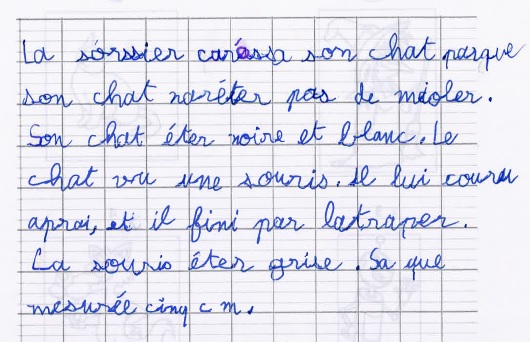 La sórssier caréssa son chat parque
son chat naréter pas de mioler.
Son chat éter noire et blanc. Le
chat vu une souris. Il lui couru
aprai, et il fini par latraper.
La souris éter grise. Sa que
mesurée cinq c m.